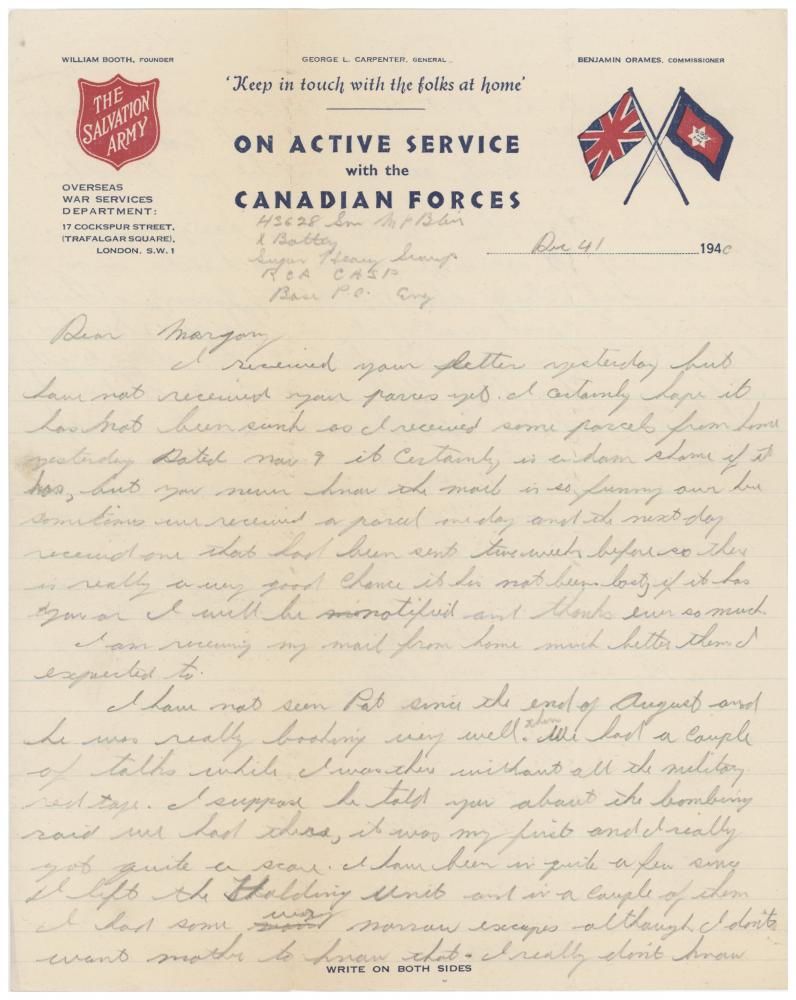 WILLIAM BOOTH, FOUNDER
GEORGE L. CARPENTER, GENERAL
BENJAMIN ORAMES, COMMISSIONER
THE
SALVATION
ARMY
'Keep in touch with the folks at home'
ON ACTIVE SERVICE
with the
CANADIAN FORCES
OVERSEAS
WAR SERVICES
DEPARTMENT:
17 COCKSPUR STREET,
(TRAFALGAR SQUARE),
LONDON. S.W.1
43628 Gnr
Battery
Heavy Group
RCA CASF
Base P.O. Eng
Dec 41 1940
Dear Margory
I received your letter yesterday but
have not received your parcel yet. I certainly hope it
has not been sunk as I received some parcels from home
yesterday Dated Nov 9 it Certainly is a dam shame if it
has, but you never know the mail is so funny over here
sometimes we received a parcel one day and the next day
received one that had been sent two weeks before so there
is really a very good chance it has not been lost, if it has
you or I will be notified and thanks ever so much.
I am receiving my mail from home much better then I
expected to.
I have not seen Pat since the end of August and
he was really looking very well then. We had a couple
of talks while I was there without all the military
red tape. I suppose he told you about the bombing
raid we had there, it was my first and I really
got quite a scare. I have been in quite a few since
I left the Holding Unit and in a couple of them
I had some very narrow escapes although I don't
want mother to know that. I really don't know
WRITE ON BOTH SIDES